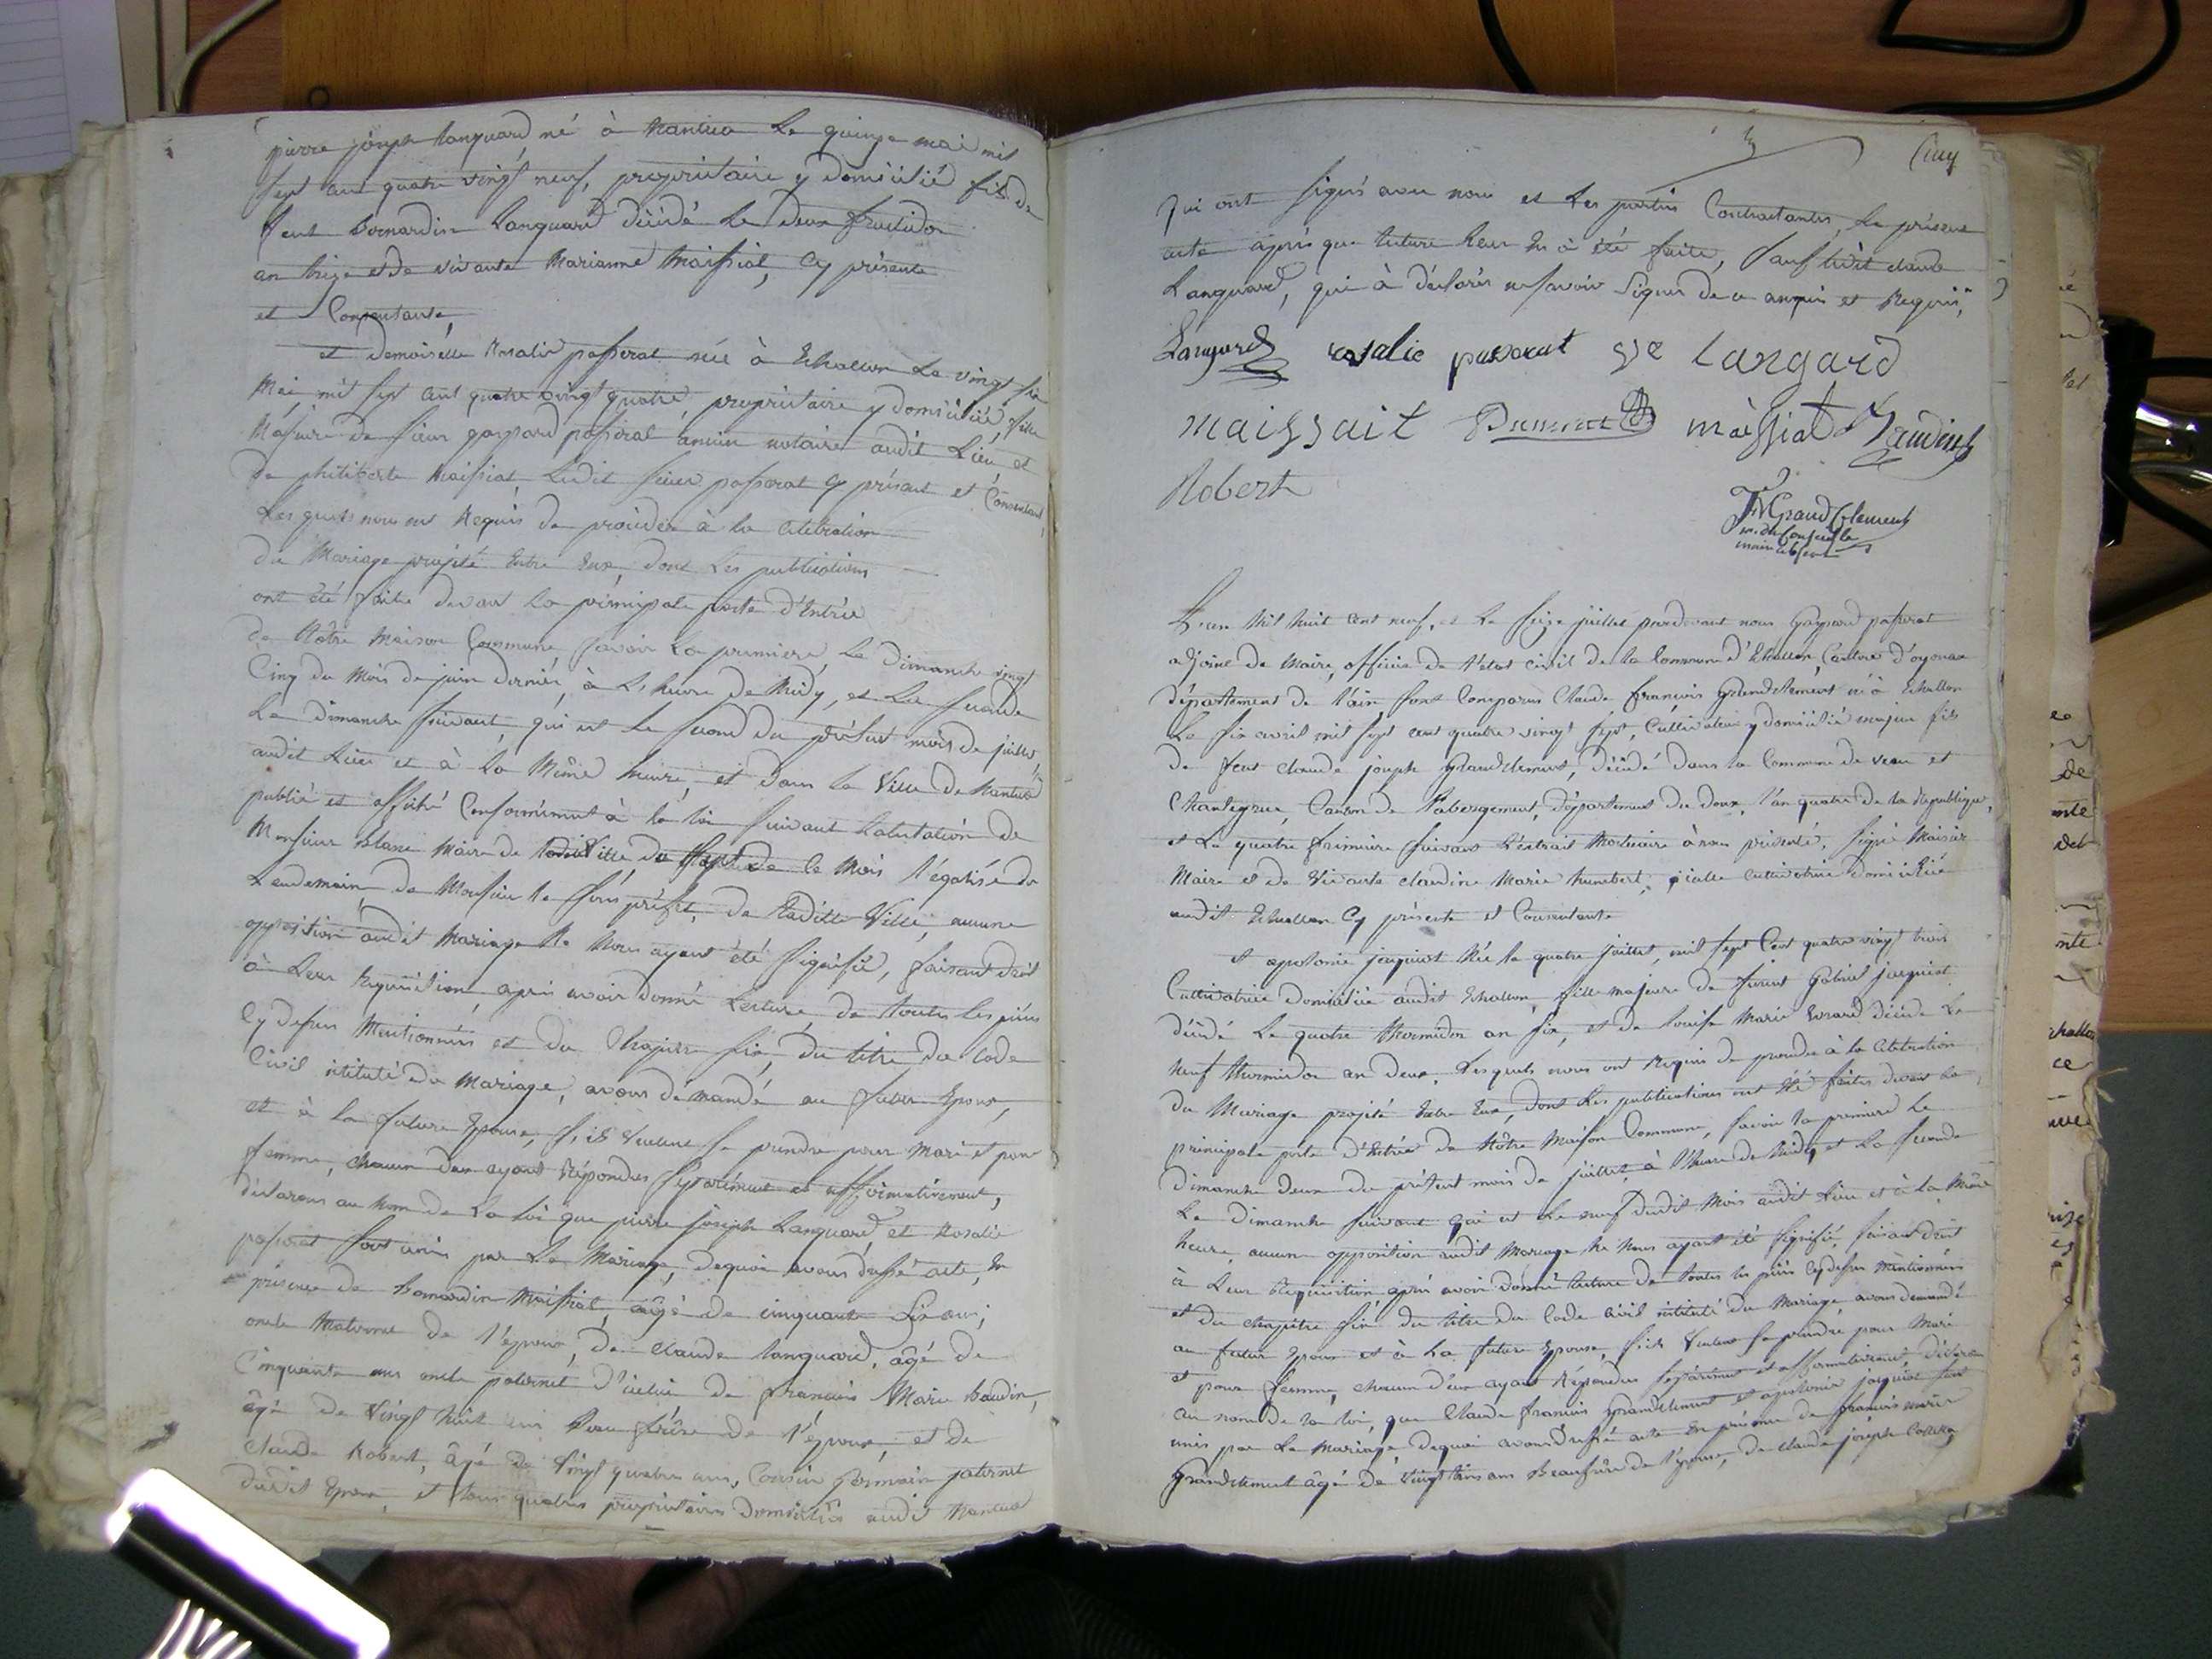 pierre joseph Languard né à Nantua Le quinze mai mil
sept cent quatre vingt neuf, propriétaire y domicilié fils de
feut Bernardin Languard décédé le deux fructidor
an treize et de vivante Marianne Maissiat, Cy présente
et Consentante,
et demoiselle Rosalie passerat née à Echallon Le vingt six
Mai mil sept cent quatre vingt quatre, propriétaire y domiciliée, fille
Majeure de sieur gaspard passerat ancien notaire audit Lieu, et
de philiberte Maissiat Ledit sieur passerat Cy présent et Consentant,
Lesquels nous ont Requis de procéder à la Célébration
du Mariage projeté Entre Eux, dont Les publications
ont été faite devant La principale porte d'Entrée
de Nôtre Maison Commune Savoir La premiere, Le dimanche vingt
Cinq du Mois de juin dernier, à L'heure de Midy, et La seconde
Le dimanche suivant, qui est Le second du présent mois de juillet,
audit Lieu et à la Même heure, et dans la Ville de Nantua
publié et affiché Conformément à la loi suivant l'attestation de
Monsieur Blanc Maire de Ville du sept de Ce Mois légalisé du
Lendemain de Monsieur le sous préfet, de Laditte Ville, aucune
opposition audit Mariage Ne Nous ayant été signifiée, faisant droit
à Leur Requisition, apres avoir donné Lecture de toutes Les pièces
Cy dessus Mentionnées et du Chapitre six, du titre du Code
Civil intitulé du Mariage, avons démandé au futur Epoux,
et à la future Epouse, s'ils veulent se prendre pour Mari et pour
femme, chacun deux ayant Répondus séparément et affirmativement,
déclarons au Nom de La loi que pierre joseph Languard et Rosalie
passerat sont unis par Le Mariage, dequoi avons dressé acte, En
présence de Bernardin Maissiat, âgé de cinquante six ans,
oncle Maternel de l'époux, de Claude Languard, âgé de
Cinquante ans oncle paternel d'icelui de francois Marie Baudin,
âgé de vingt huit ans Beau frère de l'époux, et de
Claude Robert, âgé de vingt quatre ans, Cousin Germain paternel
dudit Epoux, et tous quatres propriétaires domiciliés audit Nantua
Cinq
qui ont signés avec nous et Les parties Contractantes, Le présent
acte après que lecture leur En à été faite, sauf ledit claude
Languard, qui à déclarés ne savoir signer de ce anquis et Requis,
Languard rosalie passerat Langard
maissait maissiat Baudin
Robert
Grand Clement
L'an Mil huit Cent neuf, et Le seize juillet pardevant nous Gaspard passerat
adjoint de Maire, officier de l'état civil de la Commune d'Echallon, Canton d'oyonax
département de l'ain sont Comparus Claude françois Grandclement né à Echallon
Le six avril mil sept cent quatre vingt sept, Cultivateur y domicilié majeur fils
de feut claude joseph Grandclement, décédé dans la Commune de veau et
Chantegrue, Canton de l'abergement, département du doux, l'an quatre de la Republique,
et Le quatre frimaire suivant L'extrait Mortuaire à nous présenté, signé
Maire et de vivante claudine Marie humbert, icelle cultivatrice domiciliée
audit Echallon Cy présente et Consentante
et apolonie jacquiot Née le quatre juillet, mil sept Cent quatre vingt trois
Cultivatrice domiciliée audit Echallon, fille majeure de furent Gabriel jacquiot
décédé Le quatre thermidor an six, et de Louise Marie Evrard décédée Le
neuf thermidor an deux, Lesquels nous ont Requis de proceder à la Célébration
du Mariage projeté Entre Eux, dont Les publications ont été faites devant la
principale porte d'Entrée de Nôtre Maison Commune, savoir la premiere Le
dimanche deux du présent mois de juillet, à l'heure de Midy, et La seconde
Le dimanche suivant qui est Le neuf dudit Mois audit Lieu et à La Même
heure, aucune opposition audit Mariage Ne Nous ayant été signifié, faisant droit
à Leur Requisition, après avoir donné lecture de toutes les pièces Cy dessus mentionnées
et du chapitre six du titre du Code civil intitulé du Mariage, avons demandé
au futur Epoux et à La future Epouse, s'ils veulent se prendre pour Mari
et pour femme, chacun d'eux ayant Répondus séparément et affirmativement, déclarons
au nom de la loi, que Claude francois Grandclement et apolonie jacquiot sont
unis par Le Mariage dequoi avons dressé acte En présence de francois marie
Grandclement âgé de vingt trois ans Beaufrère de l'époux, de claude joseph